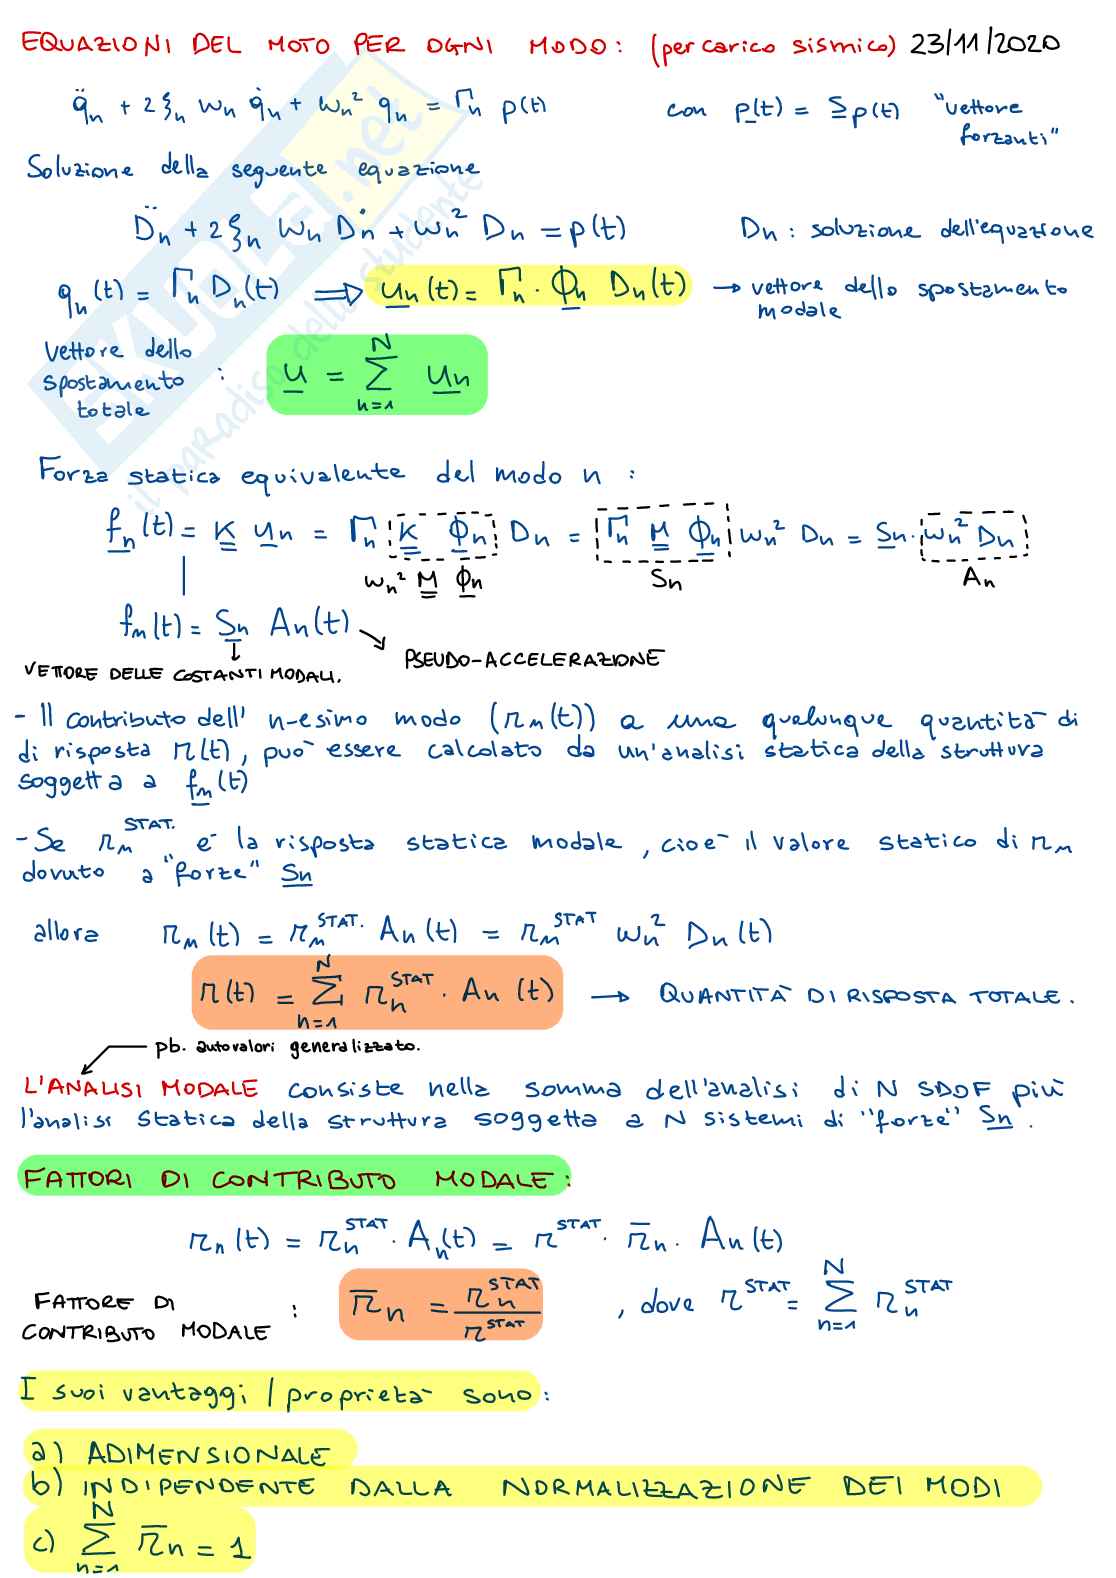 EQUAZIONI DEL MOTO PER OGNI MODO: (per carico sismico) 23/11/2020
q̈n + 2ξn ωn q̇n + ωn² qn = Γn p(t) con p(t) = S p(t) "vettore forzanti"
Soluzione della seguente equazione
D̈n + 2ξn ωn Ḋn + ωn² Dn = p(t) Dn : soluzione dell'equazione
qn(t) = Γn Dn(t) ⟹ un(t) = Γn · ϕn Dn(t) → vettore dello spostamento modale
Vettore dello spostamento totale : u = Σ n=1 N un
Forza statica equivalente del modo n :
fn(t) = K un = Γn K ϕn Dn = Γn M ϕn ωn² Dn = Sn · ωn² Dn
ωn² M ϕn Sn An
fn(t) = Sn An(t)
VETTORE DELLE COSTANTI MODALI. PSEUDO-ACCELERAZIONE
- Il contributo dell' n-esimo modo (rn(t)) a una qualunque quantità di
di risposta r(t), può essere calcolato da un'analisi statica della struttura
soggetta a fn(t)
- Se rn STAT. è la risposta statica modale, cioè il valore statico di rn
dovuto a "forze" Sn
allora rn(t) = rn STAT. An(t) = rn STAT ωn² Dn(t)
r(t) = Σ n=1 N rn STAT · An(t) → QUANTITÀ DI RISPOSTA TOTALE.
pb. autovalori generalizzato.
L'ANALISI MODALE consiste nella somma dell'analisi di N SDOF più
l'analisi statica della struttura soggetta a N sistemi di "forze" Sn.
FATTORI DI CONTRIBUTO MODALE:
rn(t) = rn STAT · An(t) = r STAT · r̄n · An(t)
FATTORE DI CONTRIBUTO MODALE : r̄n = rn STAT / r STAT , dove r STAT = Σ n=1 N rn STAT
I suoi vantaggi / proprietà sono:
a) ADIMENSIONALE
b) INDIPENDENTE DALLA NORMALIZZAZIONE DEI MODI
c) Σ n=1 N r̄n = 1
SKUOLA.net
il paradiso dello studente